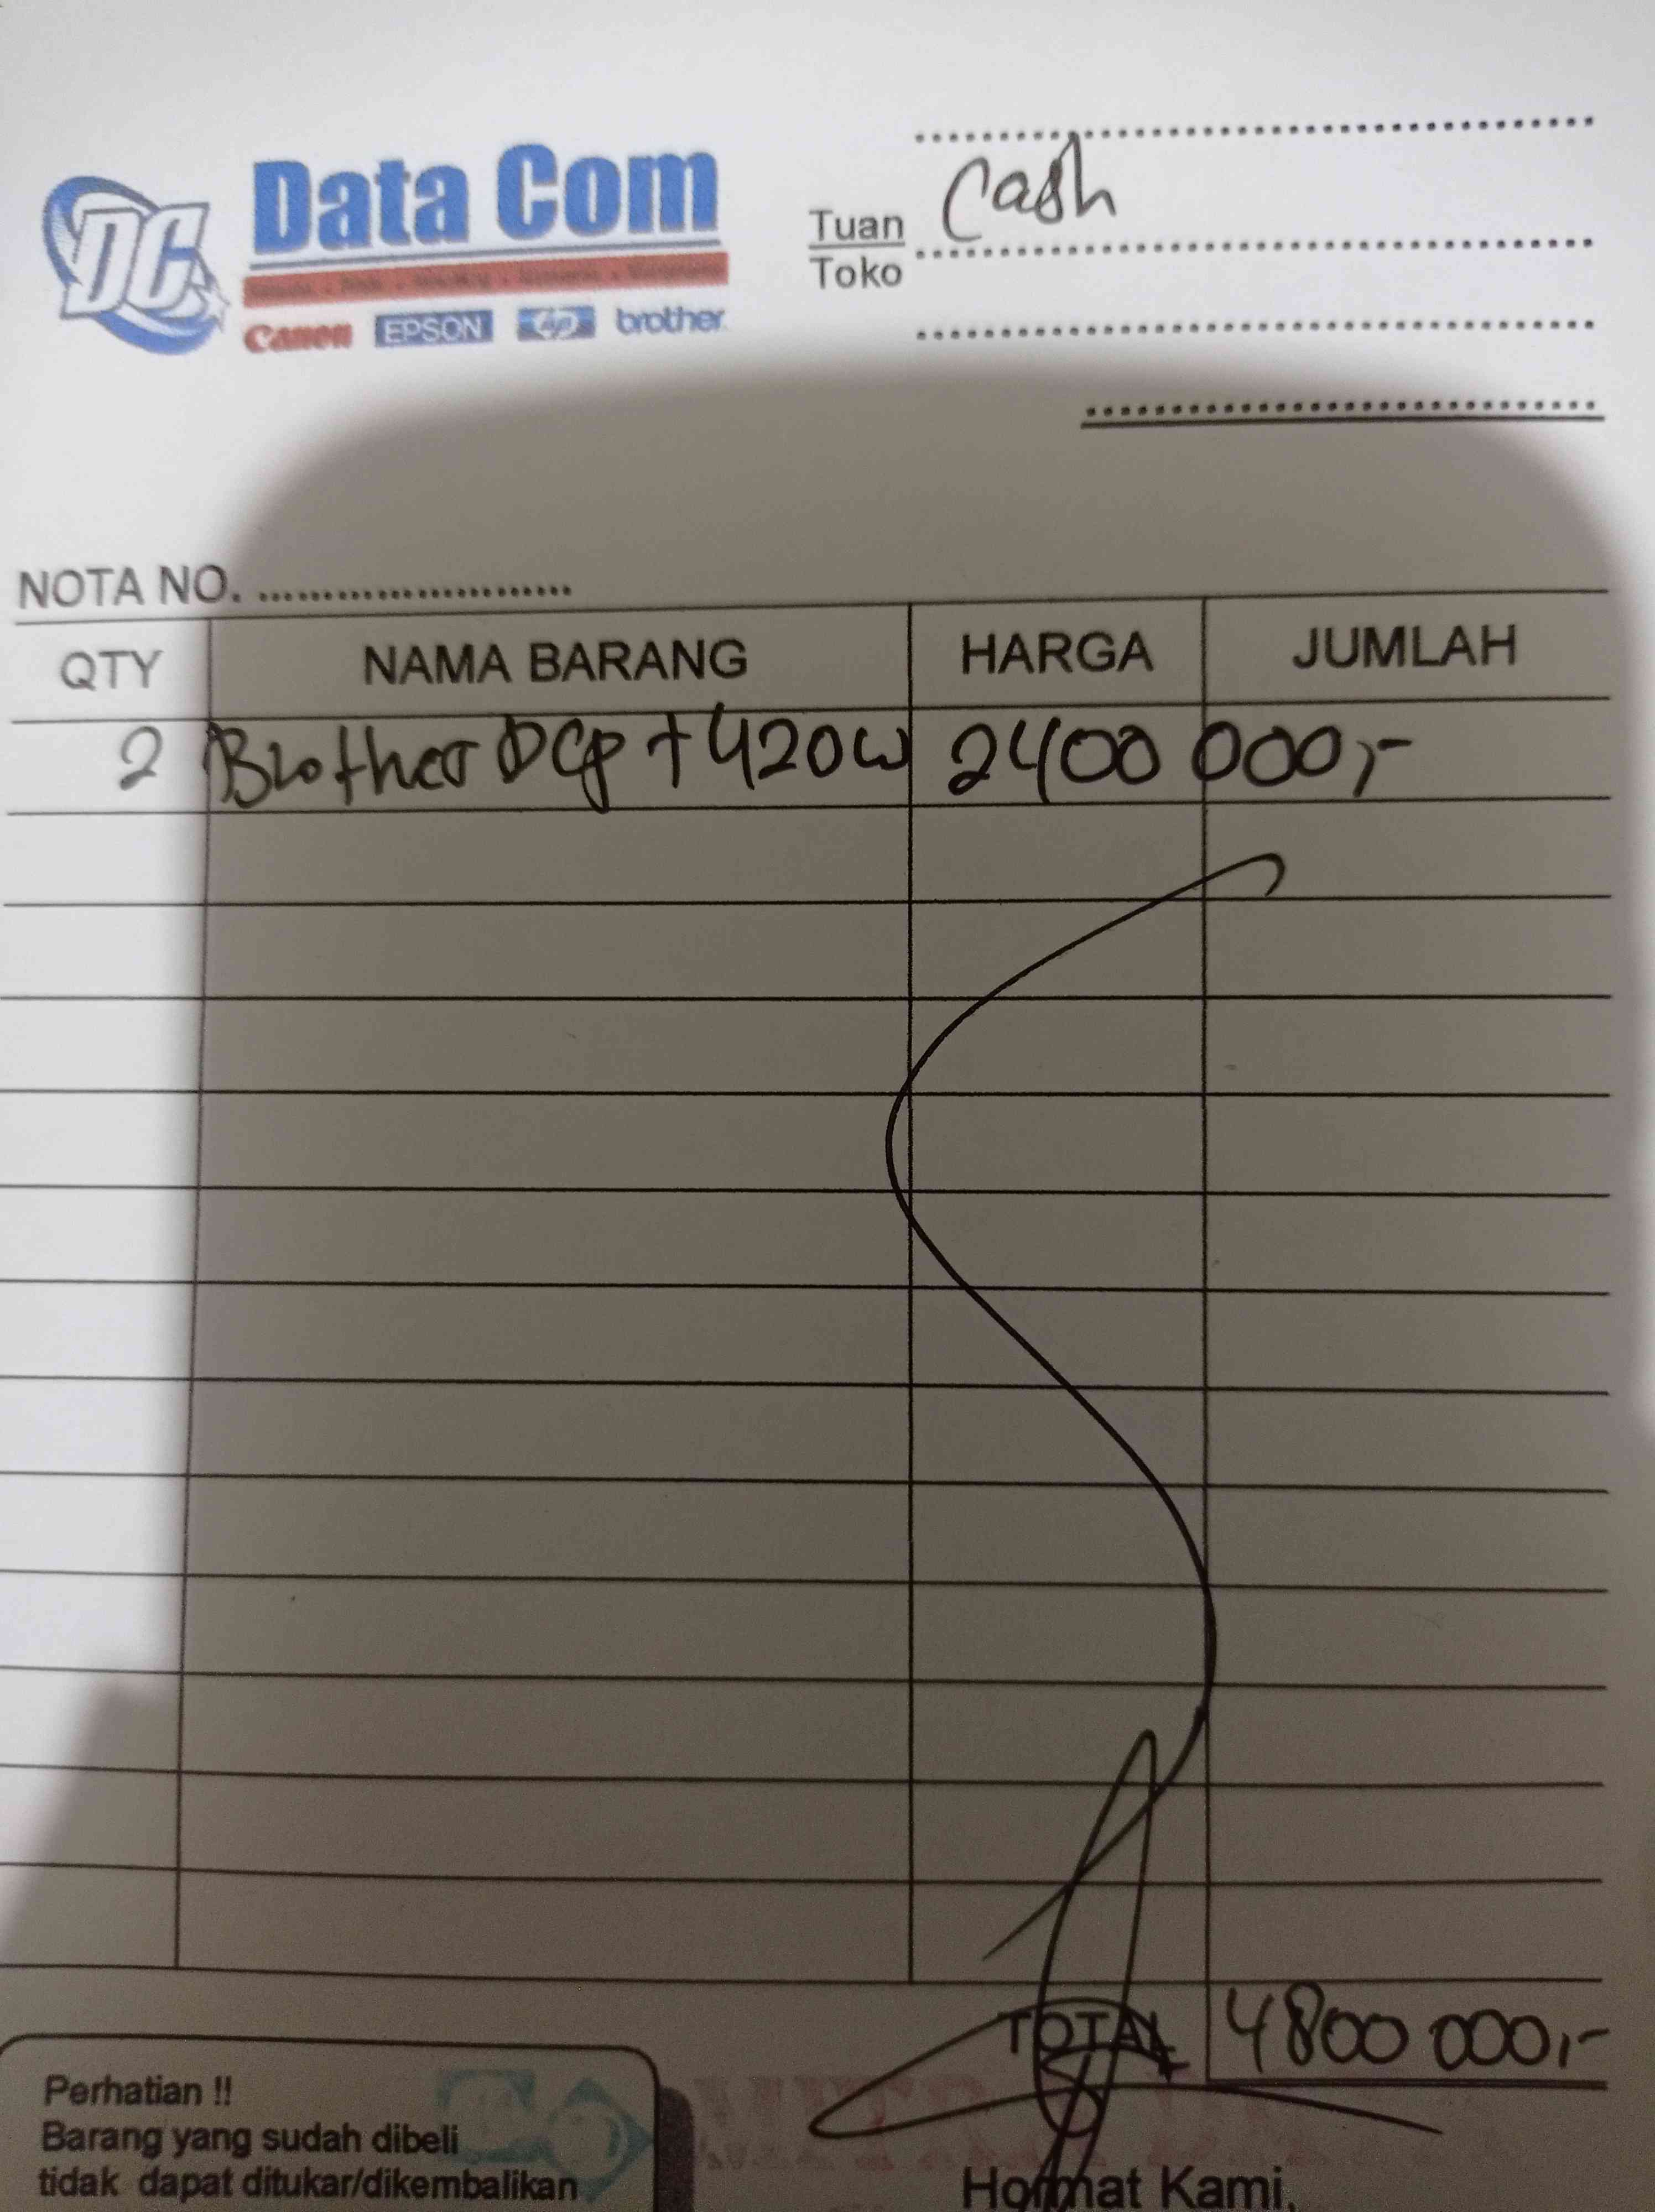 DC Data Com
Canon EPSON hp brother
Tuan Cash
Toko
NOTA NO. ........................
QTY NAMA BARANG HARGA JUMLAH
2 Brother DCP T420W 2400 000,-
TOTAL 4800 000,-
Perhatian !!
Barang yang sudah dibeli
tidak dapat ditukar/dikembalikan
Hormat Kami,